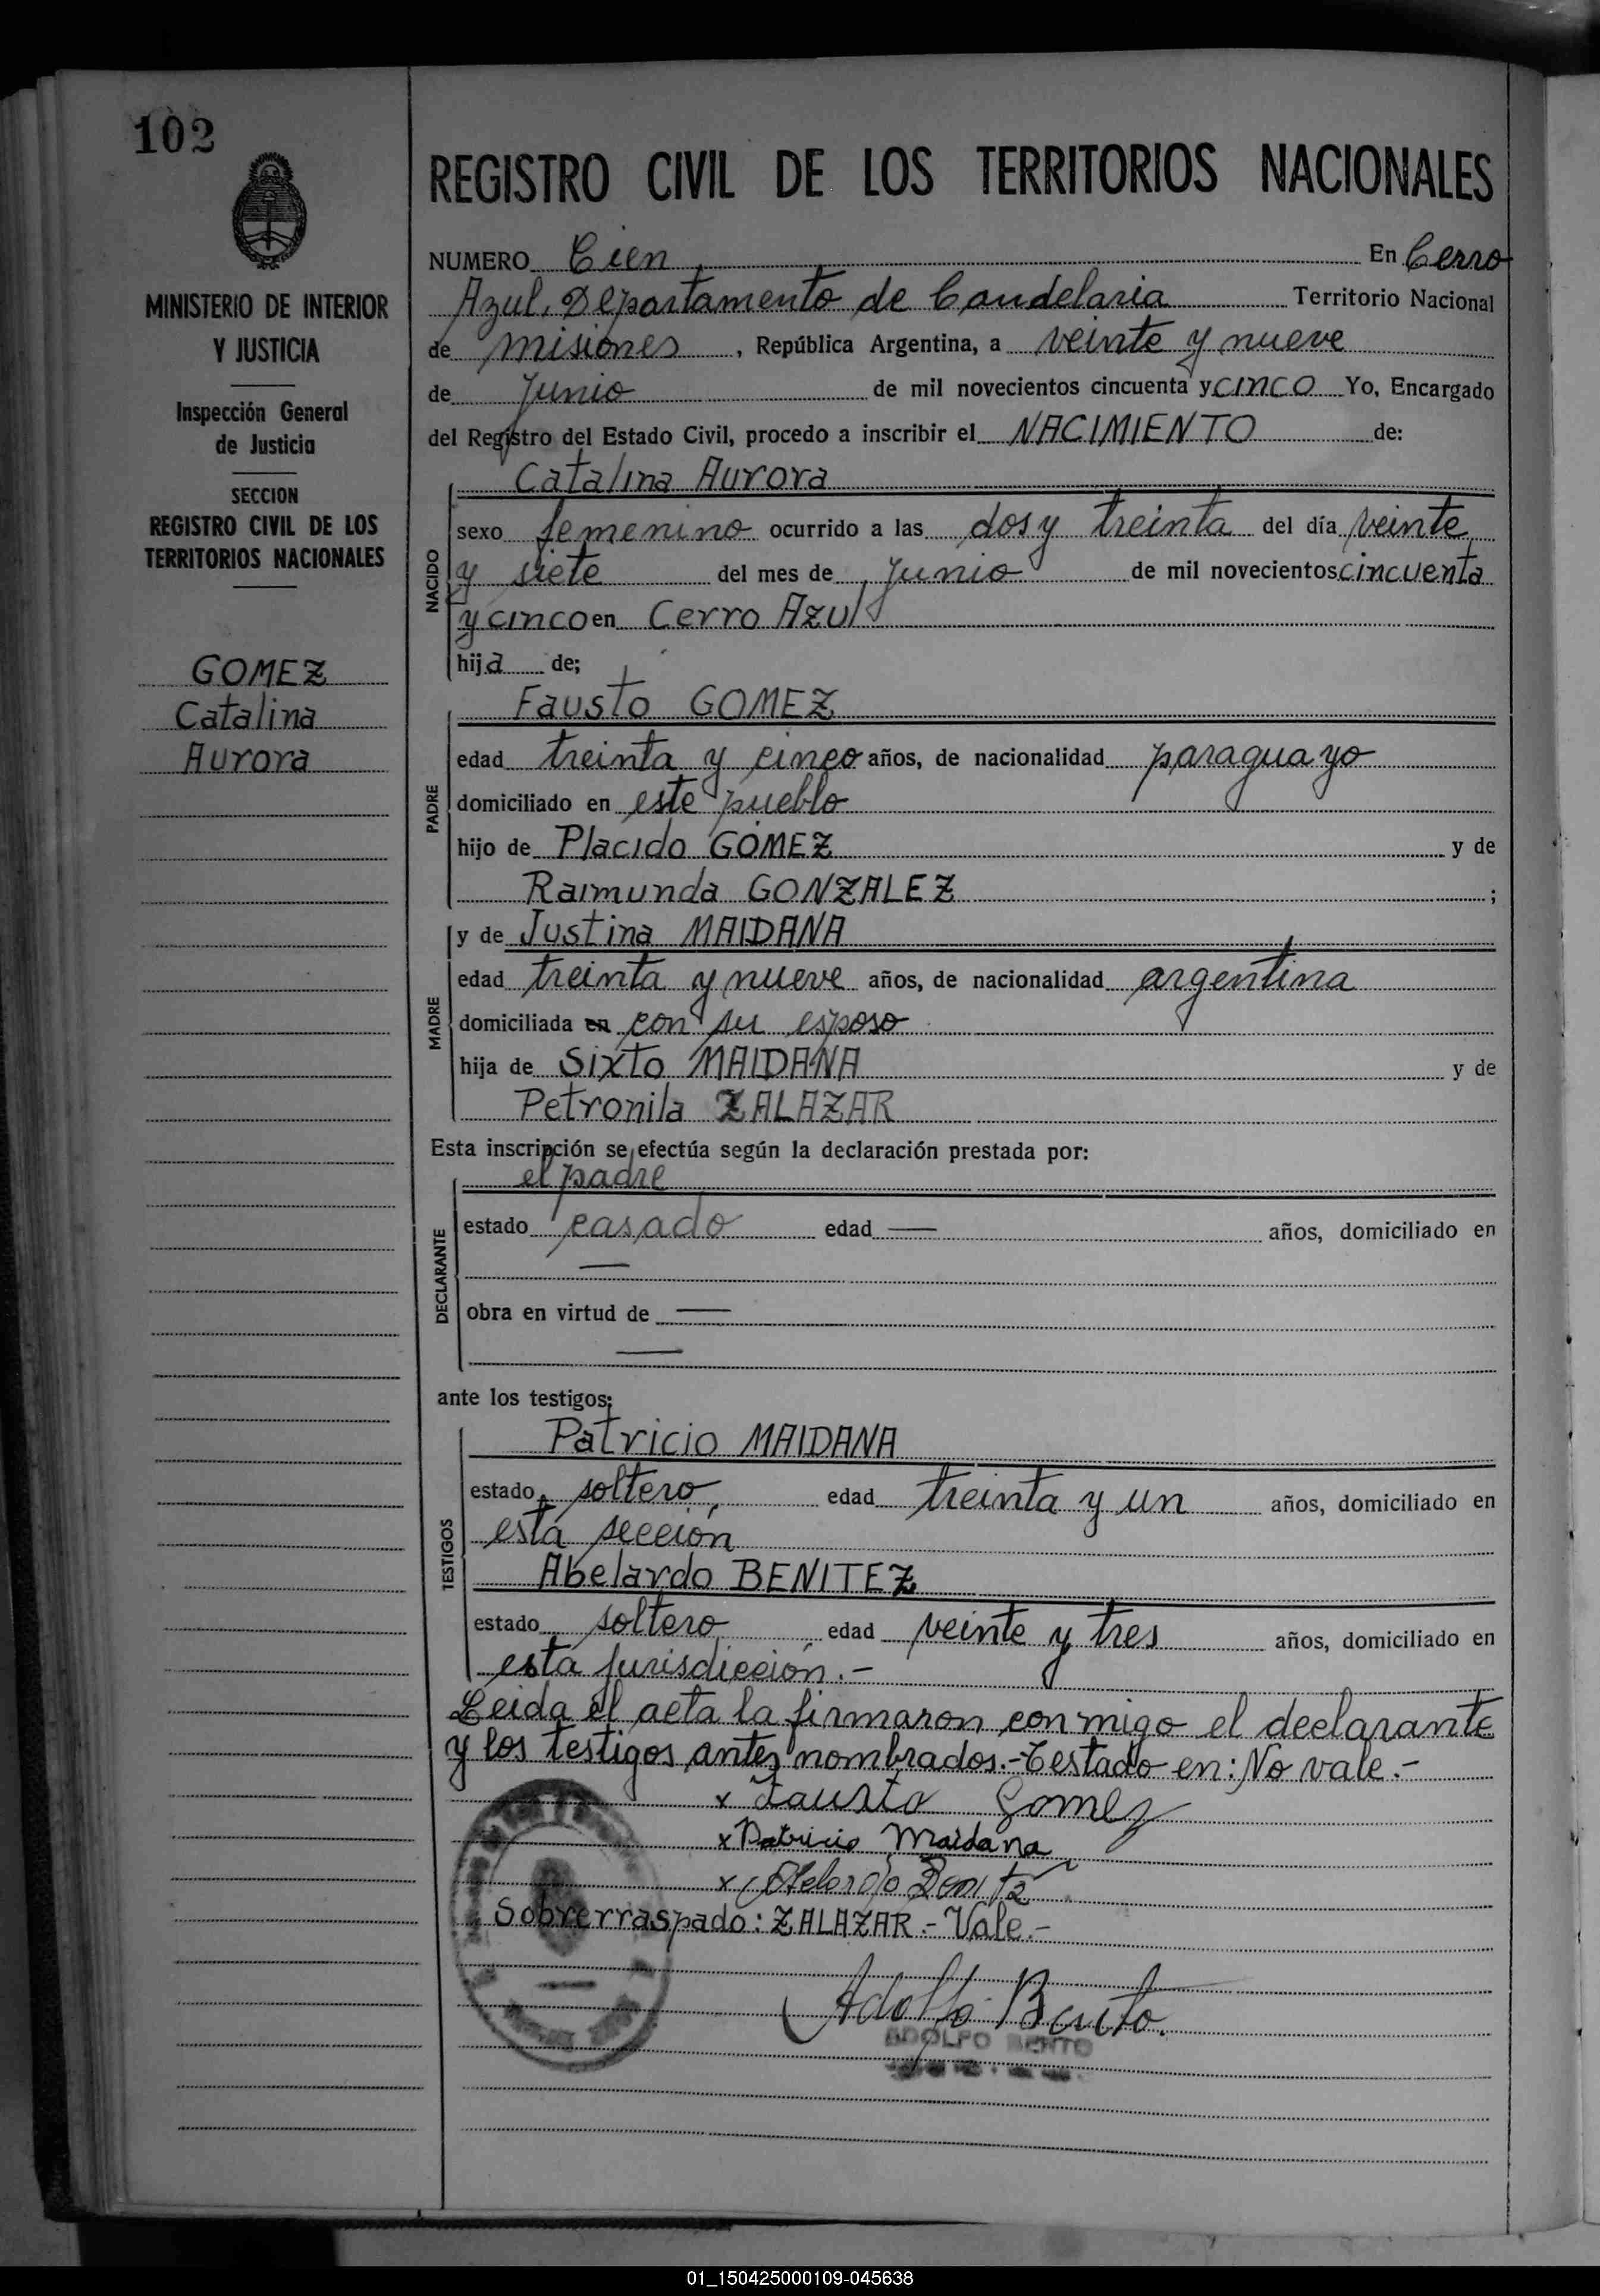 102
MINISTERIO DE INTERIOR
Y JUSTICIA
Inspección General
de Justicia
SECCION
REGISTRO CIVIL DE LOS
TERRITORIOS NACIONALES
GOMEZ
Catalina
Aurora
REGISTRO CIVIL DE LOS TERRITORIOS NACIONALES
NUMERO Cien En Cerro
Azul, Departamento de Candelaria Territorio Nacional
de misiones, República Argentina, a veinte y nueve
de Junio de mil novecientos cincuenta y cinco Yo, Encargado
del Registro del Estado Civil, procedo a inscribir el NACIMIENTO de:
Catalina Aurora
NACIDO
sexo femenino ocurrido a las dos y treinta del día veinte
y siete del mes de Junio de mil novecientos cincuenta
y cinco en Cerro Azul
hija de;
Fausto GOMEZ
PADRE
edad treinta y cinco años, de nacionalidad paraguayo
domiciliado en este pueblo
hijo de Placido GOMEZ y de
Raimunda GONZALEZ ;
y de Justina MAIDANA
MADRE
edad treinta y nueve años, de nacionalidad argentina
domiciliada en con su esposo
hija de Sixto MAIDANA y de
Petronila ZALAZAR
Esta inscripción se efectúa según la declaración prestada por:
el padre
DECLARANTE
estado casado edad — años, domiciliado en
—
obra en virtud de —
—
ante los testigos:
Patricio MAIDANA
TESTIGOS
estado soltero, edad treinta y un años, domiciliado en
esta sección
Abelardo BENITEZ
estado soltero edad veinte y tres años, domiciliado en
esta jurisdicción.-
Leida el acta la firmaron conmigo el declarante
y los testigos antes nombrados.- Testado en: No vale.-
x Fausto Gomez
x Patricio Maidana
x Abelardo Benitez
Sobrerraspado: ZALAZAR.- Vale.-
Adolfo Bento.
ADOLFO BENTO
01_150425000109-045638